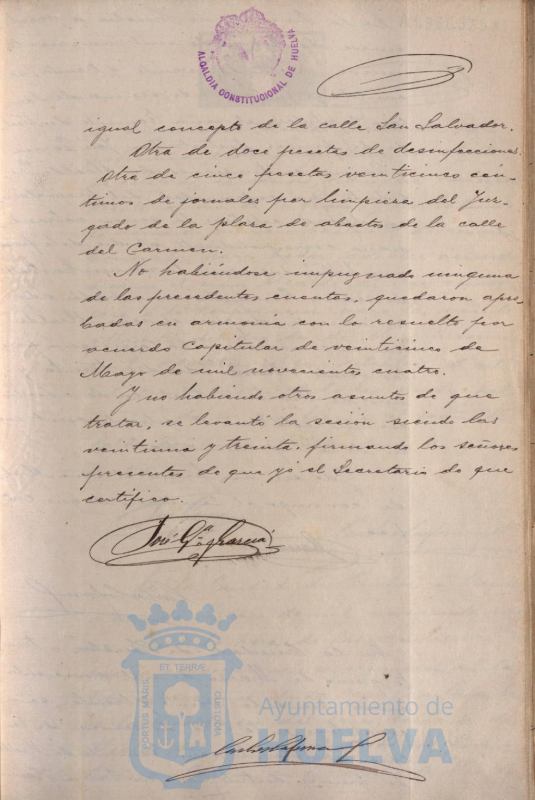 ALCALDIA CONSTITUCIONAL DE HUELVA
igual concepto de la calle San Salvador.
Otra de doce pesetas de desinfecciones.
Otra de cinco pesetas veinticinco cen-
timos de jornales por limpieza del Juz-
gado de la plaza de abastos de la calle
del Carmen.
No habiéndose impugnado ninguna
de las precedentes cuentas, quedaron apro-
badas en armonía con lo resuelto por
acuerdo Capitular de veinticinco de
Mayo de mil novecientos cuatro.
Y no habiendo otros asuntos de que
tratar, se levantó la sesión siendo las
veintiuna y treinta, firmando los señores
presentes de que yó el Secretario de que
certifico.
José Gª y García
ET TERRÆ
PORTUS MARIS
CUSTODIA
Ayuntamiento de
HUELVA